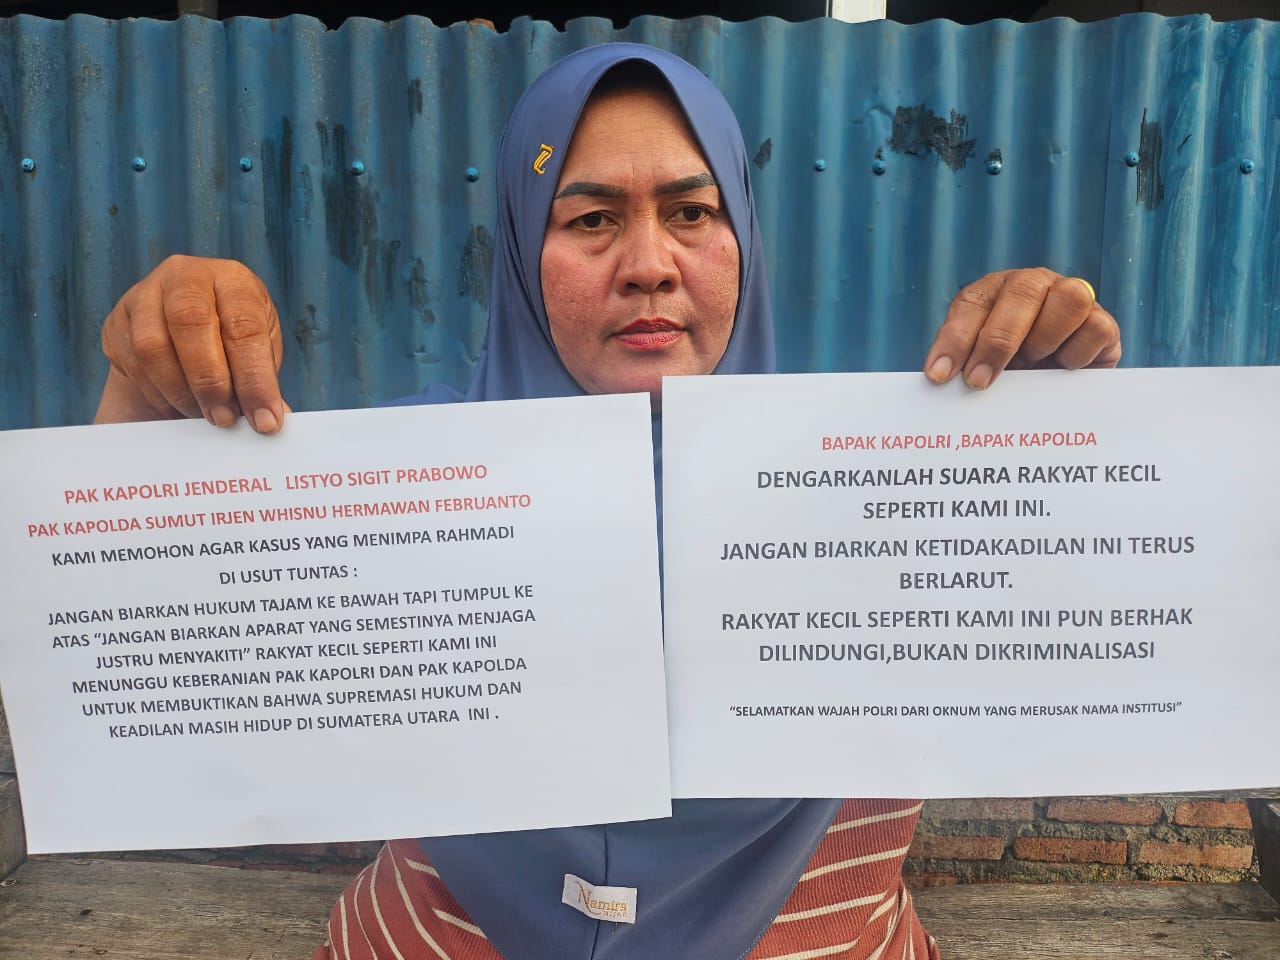 PAK KAPOLRI JENDERAL LISTYO SIGIT PRABOWO
PAK KAPOLDA SUMUT IRJEN WHISNU HERMAWAN FEBRUANTO
KAMI MEMOHON AGAR KASUS YANG MENIMPA RAHMADI
DI USUT TUNTAS :
JANGAN BIARKAN HUKUM TAJAM KE BAWAH TAPI TUMPUL KE
ATAS “JANGAN BIARKAN APARAT YANG SEMESTINYA MENJAGA
JUSTRU MENYAKITI” RAKYAT KECIL SEPERTI KAMI INI
MENUNGGU KEBERANIAN PAK KAPOLRI DAN PAK KAPOLDA
UNTUK MEMBUKTIKAN BAHWA SUPREMASI HUKUM DAN
KEADILAN MASIH HIDUP DI SUMATERA UTARA INI .
BAPAK KAPOLRI ,BAPAK KAPOLDA
DENGARKANLAH SUARA RAKYAT KECIL
SEPERTI KAMI INI.
JANGAN BIARKAN KETIDAKADILAN INI TERUS
BERLARUT.
RAKYAT KECIL SEPERTI KAMI INI PUN BERHAK
DILINDUNGI,BUKAN DIKRIMINALISASI
“SELAMATKAN WAJAH POLRI DARI OKNUM YANG MERUSAK NAMA INSTITUSI”
Namira
HIJAB